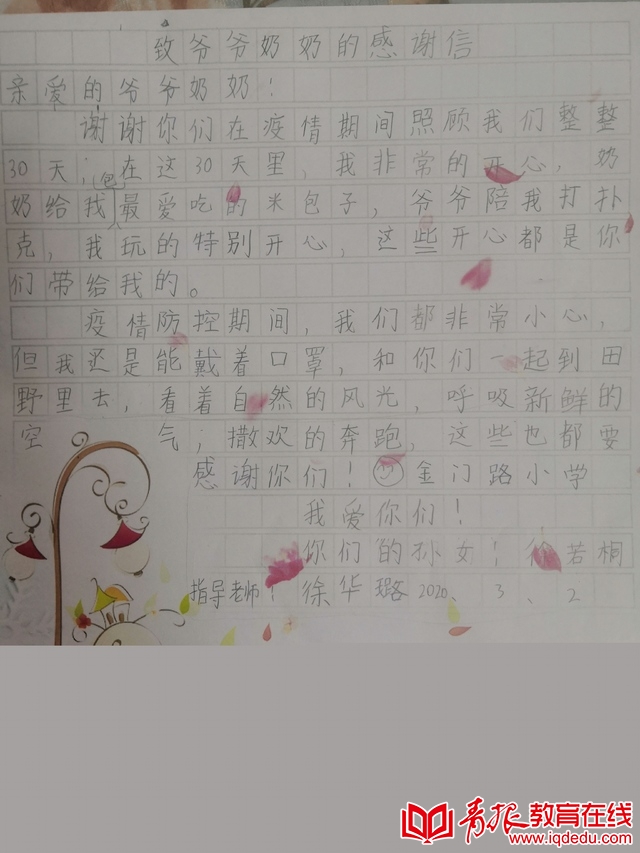 致爷爷奶奶的感谢信
亲爱的爷爷奶奶!
谢谢你们在疫情期间照顾我们整整
30天,在这30天里,我非常的开心,奶
奶给我包最爱吃的米包子,爷爷陪我打扑
克,我玩的特别开心,这些开心都是你
们带给我的。
疫情防控期间,我们都非常小心,
但我还是能戴着口罩,和你们一起到田
野里去,看着自然的风光,呼吸新鲜的
空气,撒欢的奔跑,这些也都要
感谢你们!金门路小学
我爱你们!
你们的孙女!徐若桐
指导老师:徐华璐 2020、3、2
青报教育在线
www.iqdedu.com